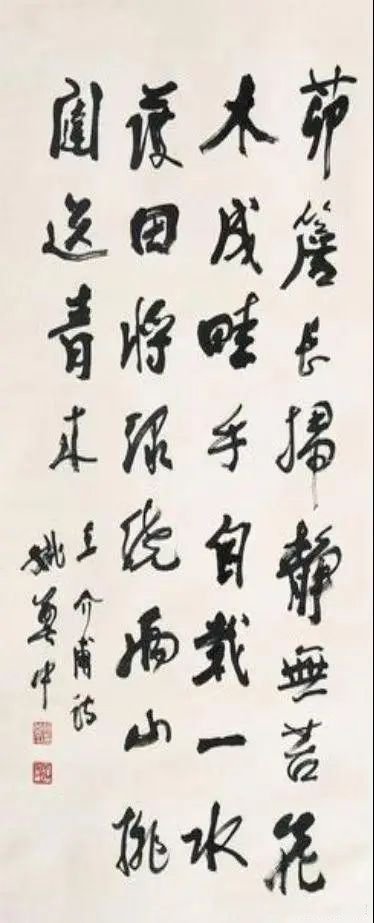 茆簷長掃靜無苔花
木成畦手自栽一水
護田將綠繞兩山排
闥送青来
王介甫詩
姚奠中